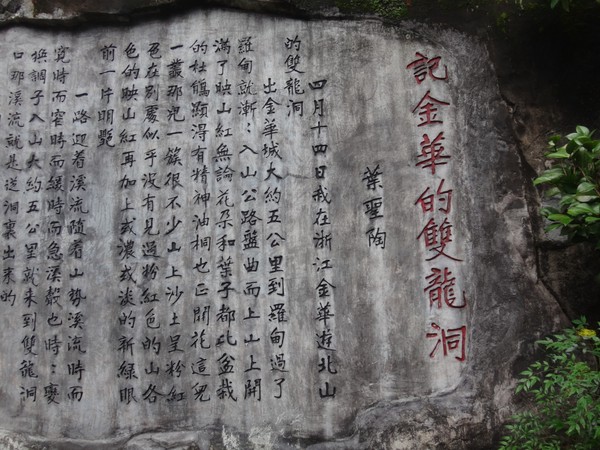 記金華的雙龍洞
葉聖陶
四月十四日我在浙江金華遊北山
的雙龍洞
出金華城大約五公里到羅甸過了
羅甸就漸：入山公路盤曲而上山上開
滿了映山紅無論花朵和葉子都比盆栽
的杜鵑顯得有精神油桐也正開花這兒
一叢那兒一簇很不少山上沙土呈粉紅
色在別處似乎沒有見過粉紅色的山各
色的映山紅再加上或濃或淡的新綠眼
前一片明艷
一路迎着溪流隨着山勢溪流時而
寬時而窄時而緩時而急溪聲也時：變
換調子入山大約五公里就來到雙龍洞
口那溪流就是從洞裏出來的